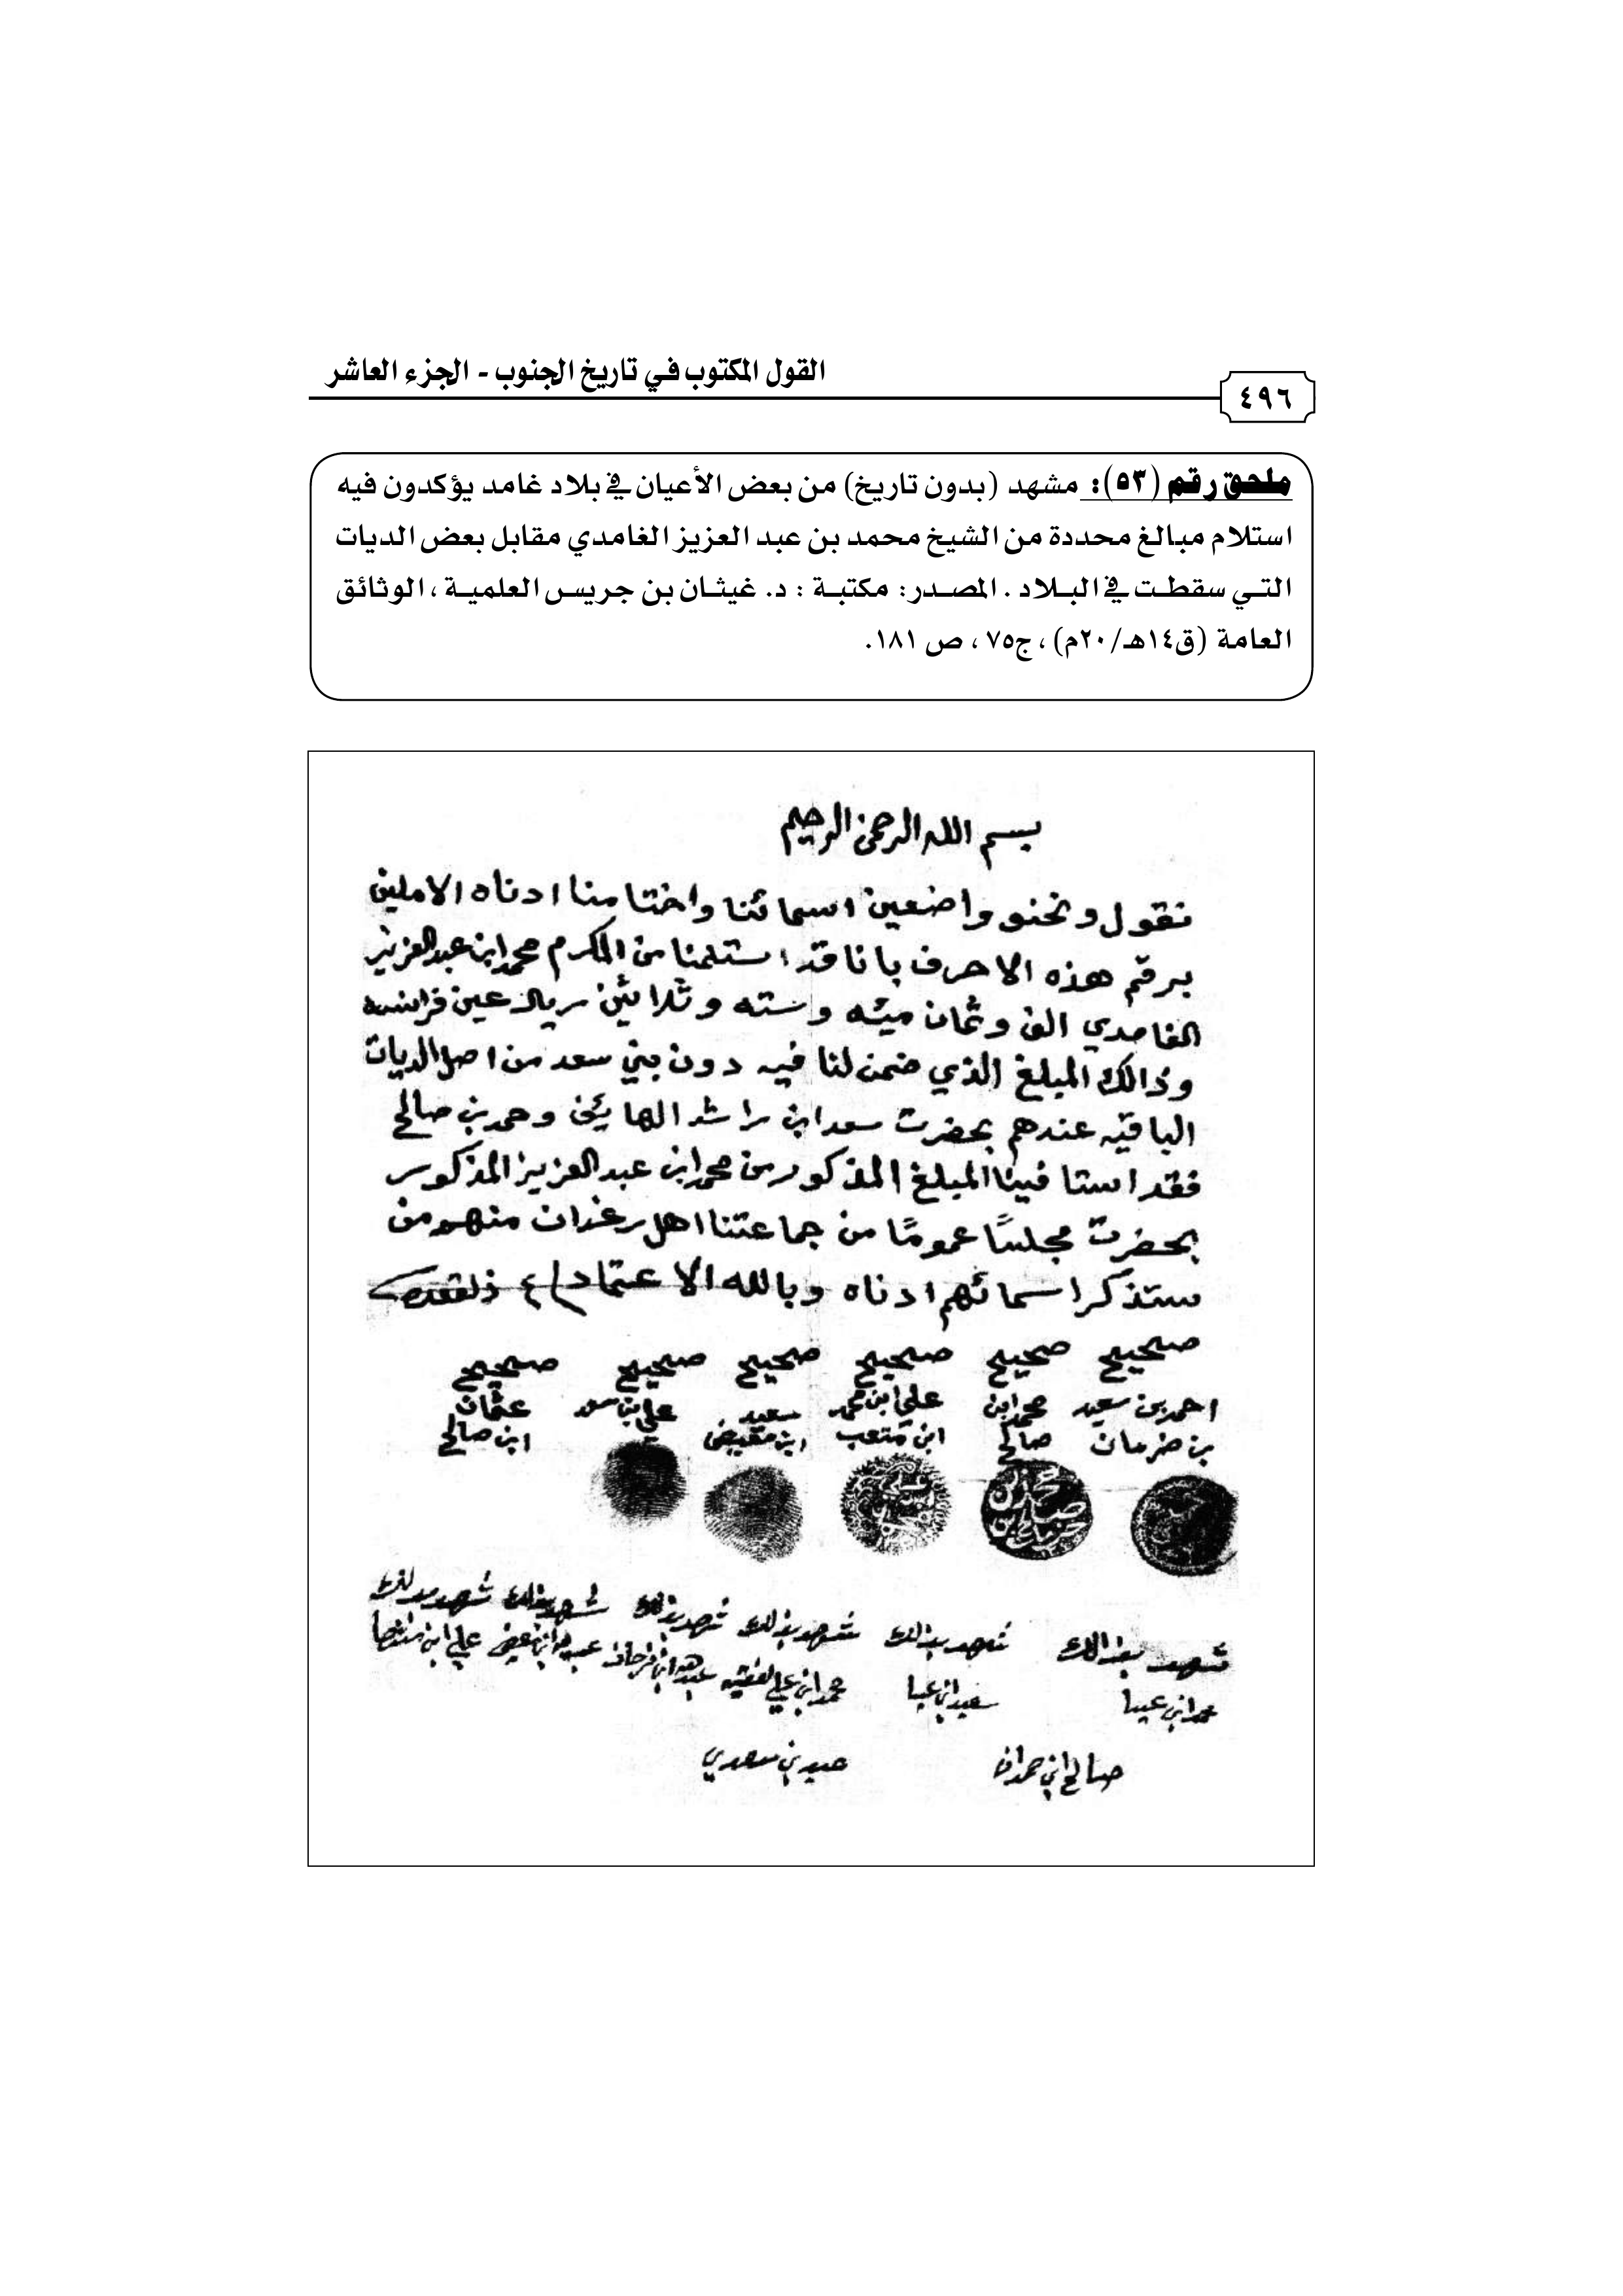 القول المكتوب في تاريخ الجنوب - الجزء العاشر
٤٩٦
ملحق رقم (٥٣): مشهد (بدون تاريخ) من بعض الأعيان في بلاد غامد يؤكدون فيه
استلام مبالغ محددة من الشيخ محمد بن عبد العزيز الغامدي مقابل بعض الديات
التي سقطت في البلاد . المصدر: مكتبة : د. غيثان بن جريس العلمية ، الوثائق
العامة (ق١٤هـ/٢٠م) ، ج٧٥ ، ص ١٨١.
بسم الله الرحمن الرحيم
نقول ونحنو واضعين اسمائنا واختامنا ادناه الاملين
برقم هذه الاحرف بانا قد استلمنا من المكرم محمد ابن عبد العزيز
الغامدي الف وثمان ميئه وسته وثلاثين ريال عين فرانسه
وذالك المبلغ الذي ضمن لنا فيه دون بني سعد من اصل الديات
الباقيه عندهم بحضرت سعد ابن راشد وحمد بن صالح
فقد استافينا المبلغ المذكور من محمد ابن عبد العزيز المذكور
بحضرت مجلسًا عمومًا من جماعتنا اهل رغدان منهم من
ستذكر اسمائهم ادناه وبالله الاعتماد ٤
صحيح صحيح صحيح صحيح صحيح صحيح
احمد بن سعيد محمد ابن علي ابن محمد سعيد علي بن سعد عثمان
بن ضرمان صالح ابن متعب ابن مقبيض ابن صالح
شهد بذالك شهد بذالك شهد بذالك شهد بذالك شهد بذالك شهد بذالك
محمد ابن عيبا سعيد ابن عيبا محمد ابن علي الفقيه
صالح ابن حمدان بن سعدي